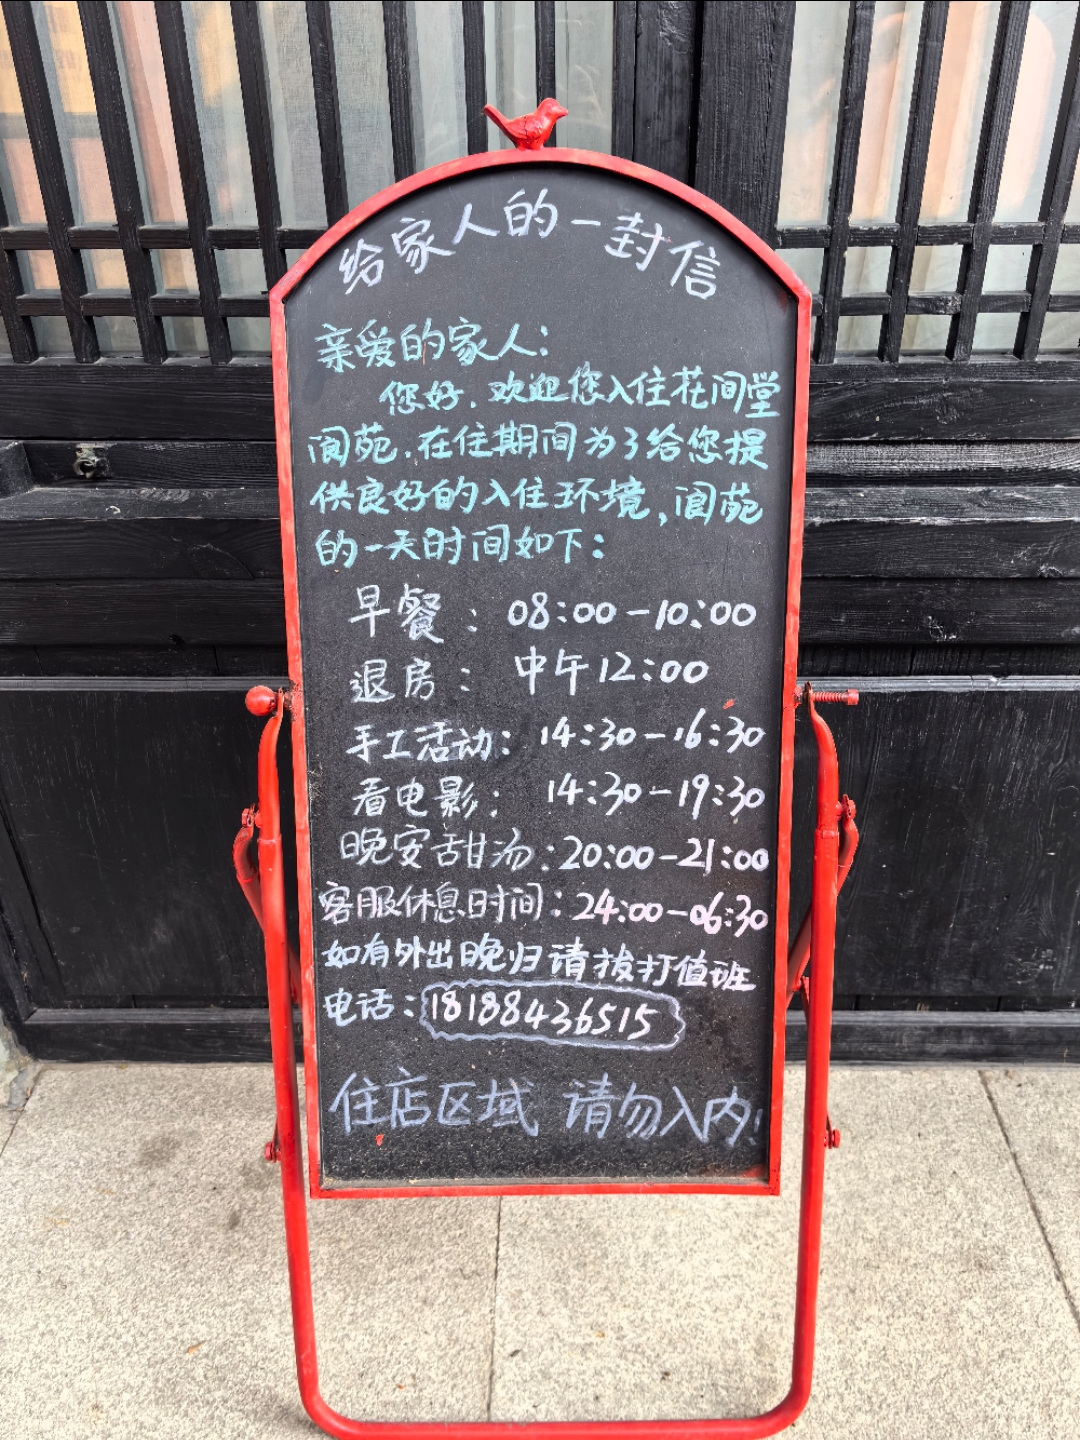 给家人的一封信
亲爱的家人:
您好.欢迎您入住花间堂
阆苑.在住期间为了给您提
供良好的入住环境,阆苑
的一天时间如下:
早餐:08:00-10:00
退房:中午12:00
手工活动:14:30-16:30
看电影:14:30-19:30
晚安甜汤:20:00-21:00
客服休息时间:24:00-06:30
如有外出晚归请拨打值班
电话:18188436515
住店区域 请勿入内!